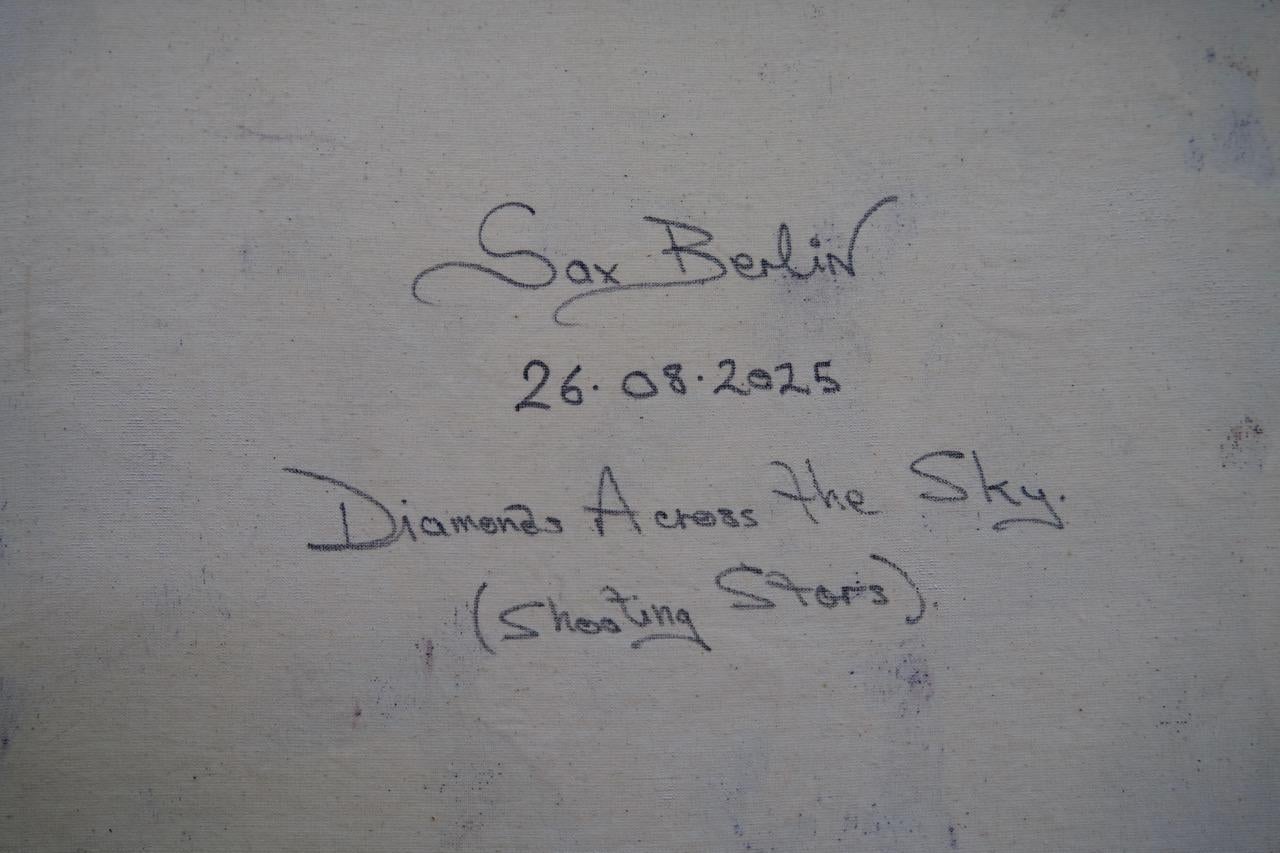 Sax Berlin
26.08.2025
Diamonds Across the Sky.
(Shooting Stars).